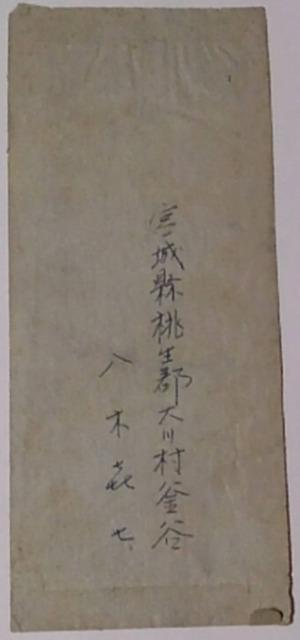 宮城縣桃生郡大川村釜谷
八木㐂七